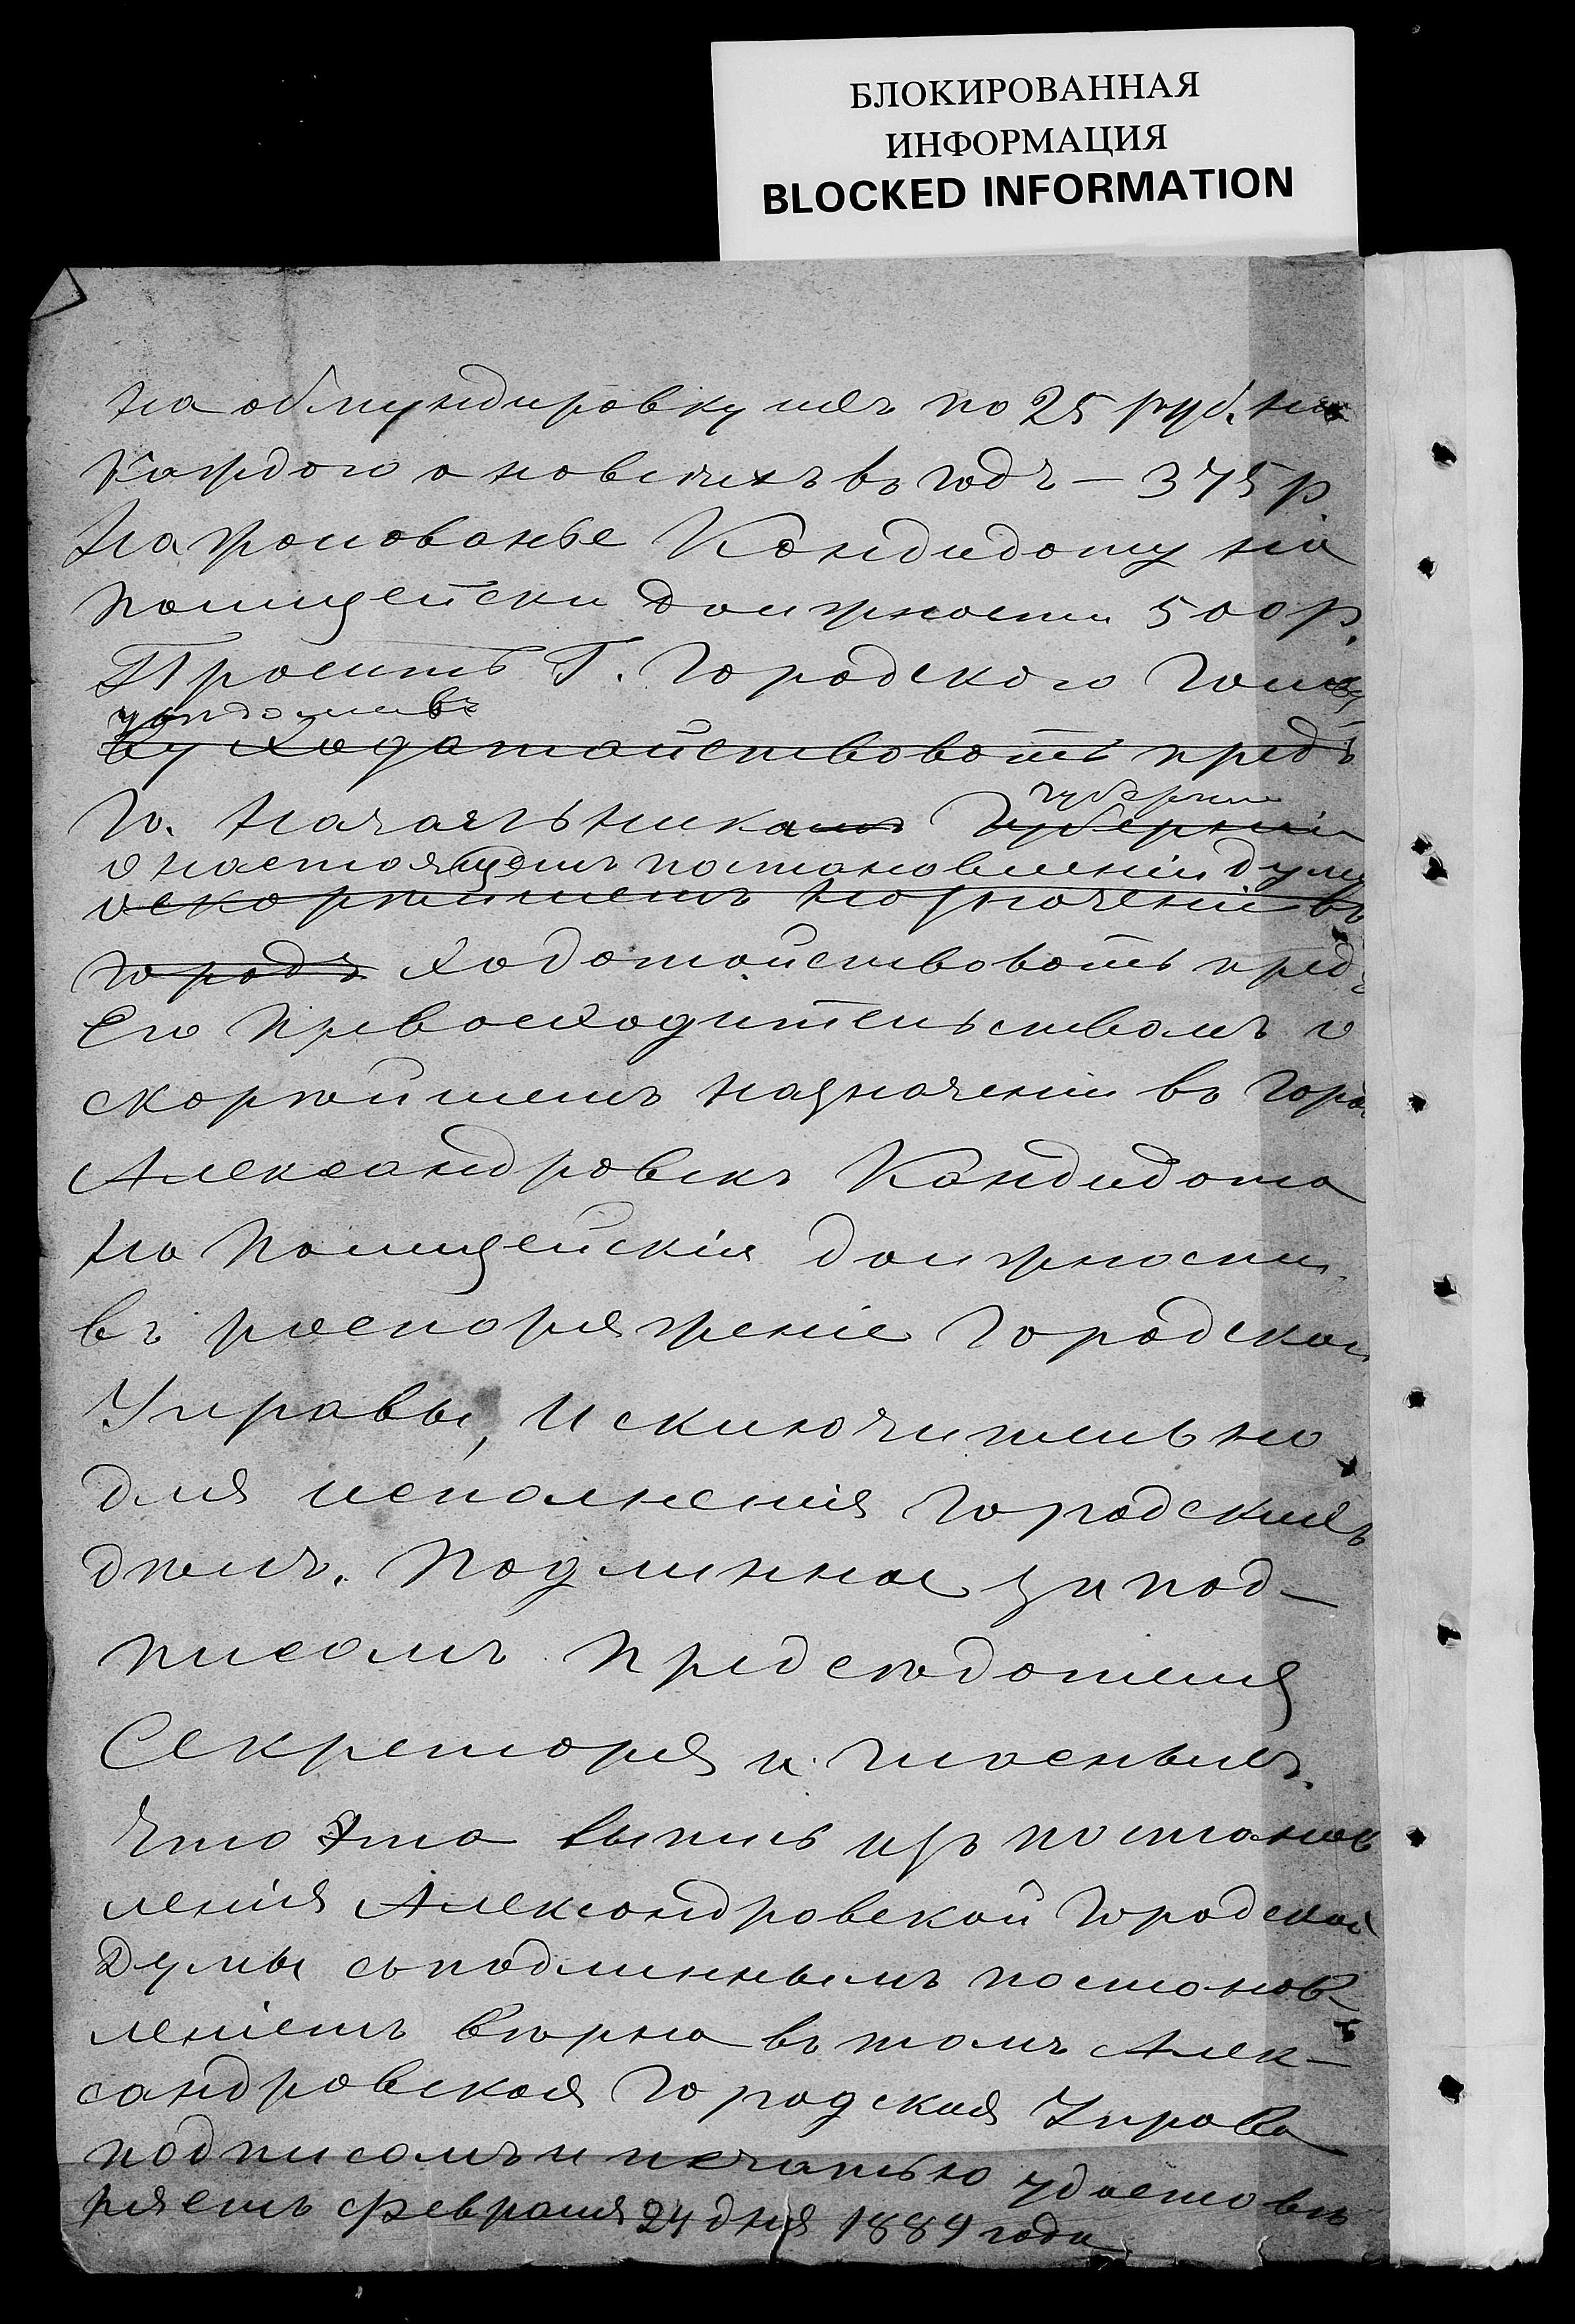 БЛОКИРОВАННАЯ
ИНФОРМАЦИЯ
BLOCKED INFORMATION
На обмундировку ихъ по 25 руб. на
каждого а на всѣхъ въ годъ — 375 р.
На жалованье Кандидату на
полицейски должности 500 р.
Просить Г. Городского Голо
увѣдомивъ
ву ходатайствовать предъ
Г. Начальникамъ Губерніи
губерніи
о настоящемъ постановленіи думы
о скорѣйшемъ назначеніи въ
городъ ходатайствовать предъ
Его Превосходительствомъ о
скорѣйшемъ назначеніи въ горо
Александровскъ Кандидата
на Полицейскія должности
въ распоряженіе Городской
Управы, исключительно
для исполненія Городскихъ
дѣлъ. Подлинное за под-
писомъ Предсѣдателя
Секретаря и гласныхъ.
Что эта выпись изъ постанов
ленія Александровской Городской
Думы съ подлиннымъ постанов-
леніемъ вѣрна въ томъ Алек-
сандровская Городская Управа
подписомъ и печатью удостовѣ
ряетъ Февраля 24 дня 1884 года